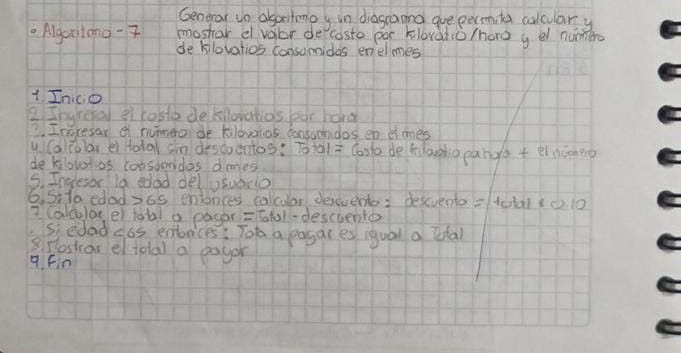 Generar un algoritmo y un diagrama que permita calcular y
• Algoritmo - 7 mostrar el valor de costo por kilovatio/hora y el número
de kilovatios consumidos en el mes
1. Inicio
2. Ingresar el costo de kilovatios por hora
3. Ingresar el número de kilovatios consumidos en el mes
4. Calcular el total sin descuentos: Total = Costo de kilovatio por hora + el número
de kilovatios consumidos mes
5. Ingresar la edad del usuario
6. Si la edad >65 entonces calcular descuento: descuento = total * 0.10
7. Calcular el total a pagar = Total - descuento
. Si edad <65 entonces: Tota a pagar es igual a Total
8. Mostrar el total a pagar
9. Fin